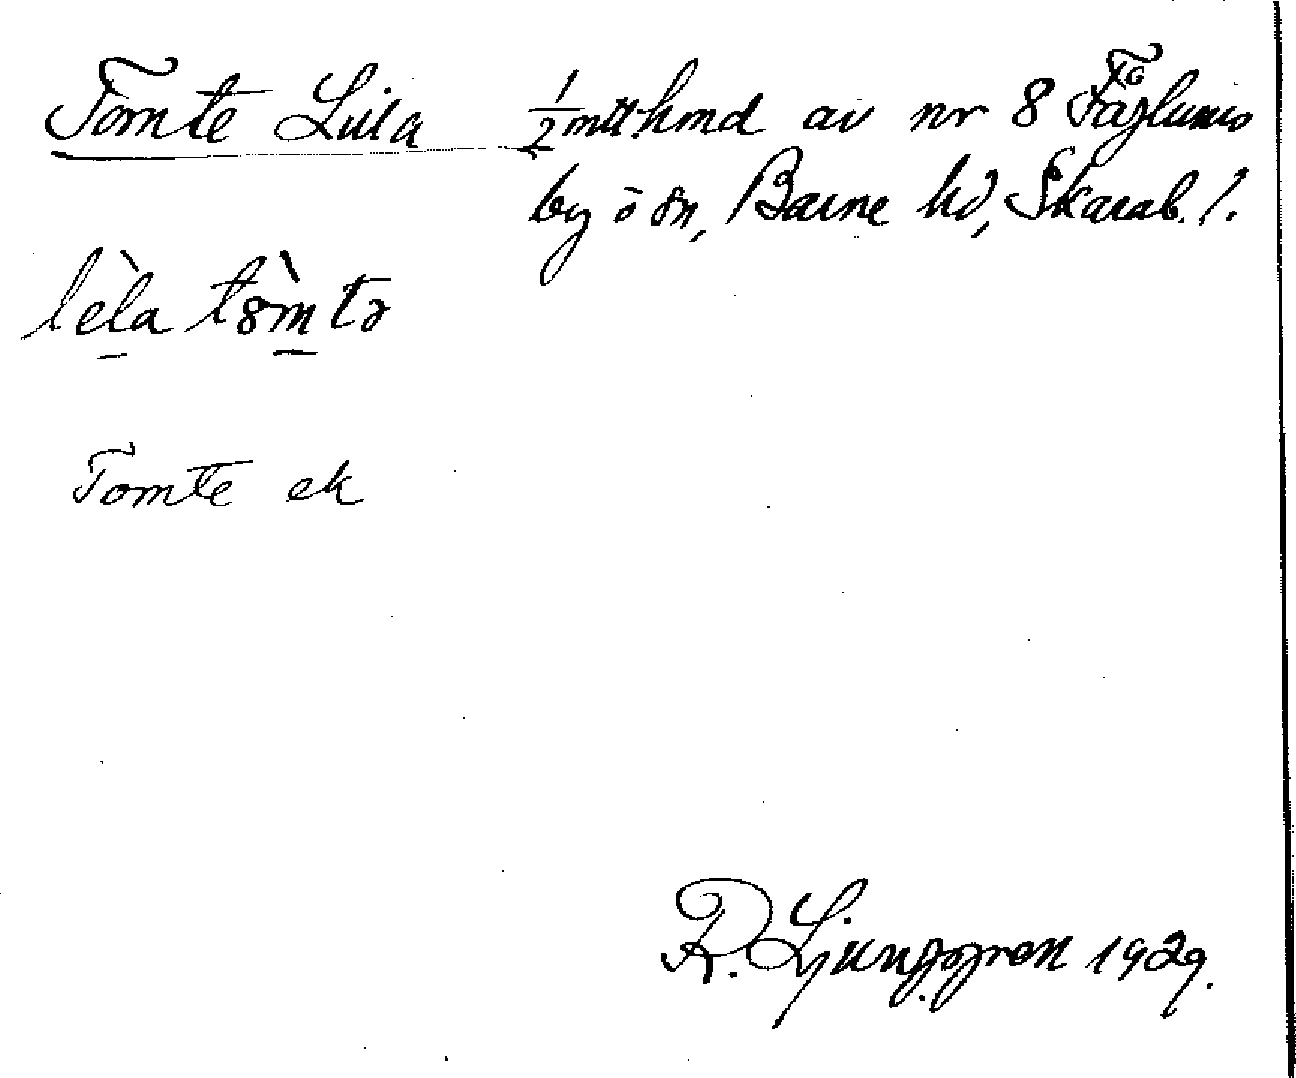 Tomte Lilla 1/2 mtlhmd av nr 8 Fåglums
by o sn, Barne hd, Skarab. l.
lèla tòmtə
Tomte ek
R. Ljunggren 1929.